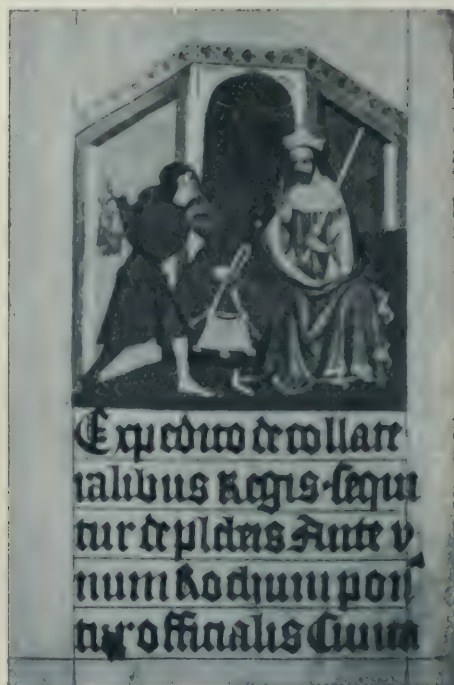 Expedito de collate
ralibus Regis sequi
tur de plebeis Ante v
num Rochum pon
tur officialis Ciuita